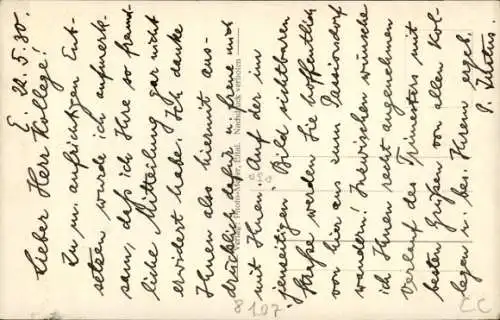 E. 22.5.30.
Lieber Herr Kollege!
Zu m. aufrichtigen Ent-
setzen wurde ich aufmerk-
sam, daß ich Ihre so freund-
liche Mitteilung gar nicht
erwidert habe. Ich danke
Ihnen also hiermit aus-
drücklich dafür u. freue mich
mit Ihnen. Auf der im
jenseitigen Bild sichtbaren
Straße werden Sie hoffentlich
von hier aus zum Passionsdorf
wandern! Inzwischen wünsche
ich Ihnen recht angenehmen
Verlauf des Trimesters mit
besten Grüßen von allen Kol-
legen u. bes. Ihrem ergeb.
P.
Nachdruck verboten
8107
CC